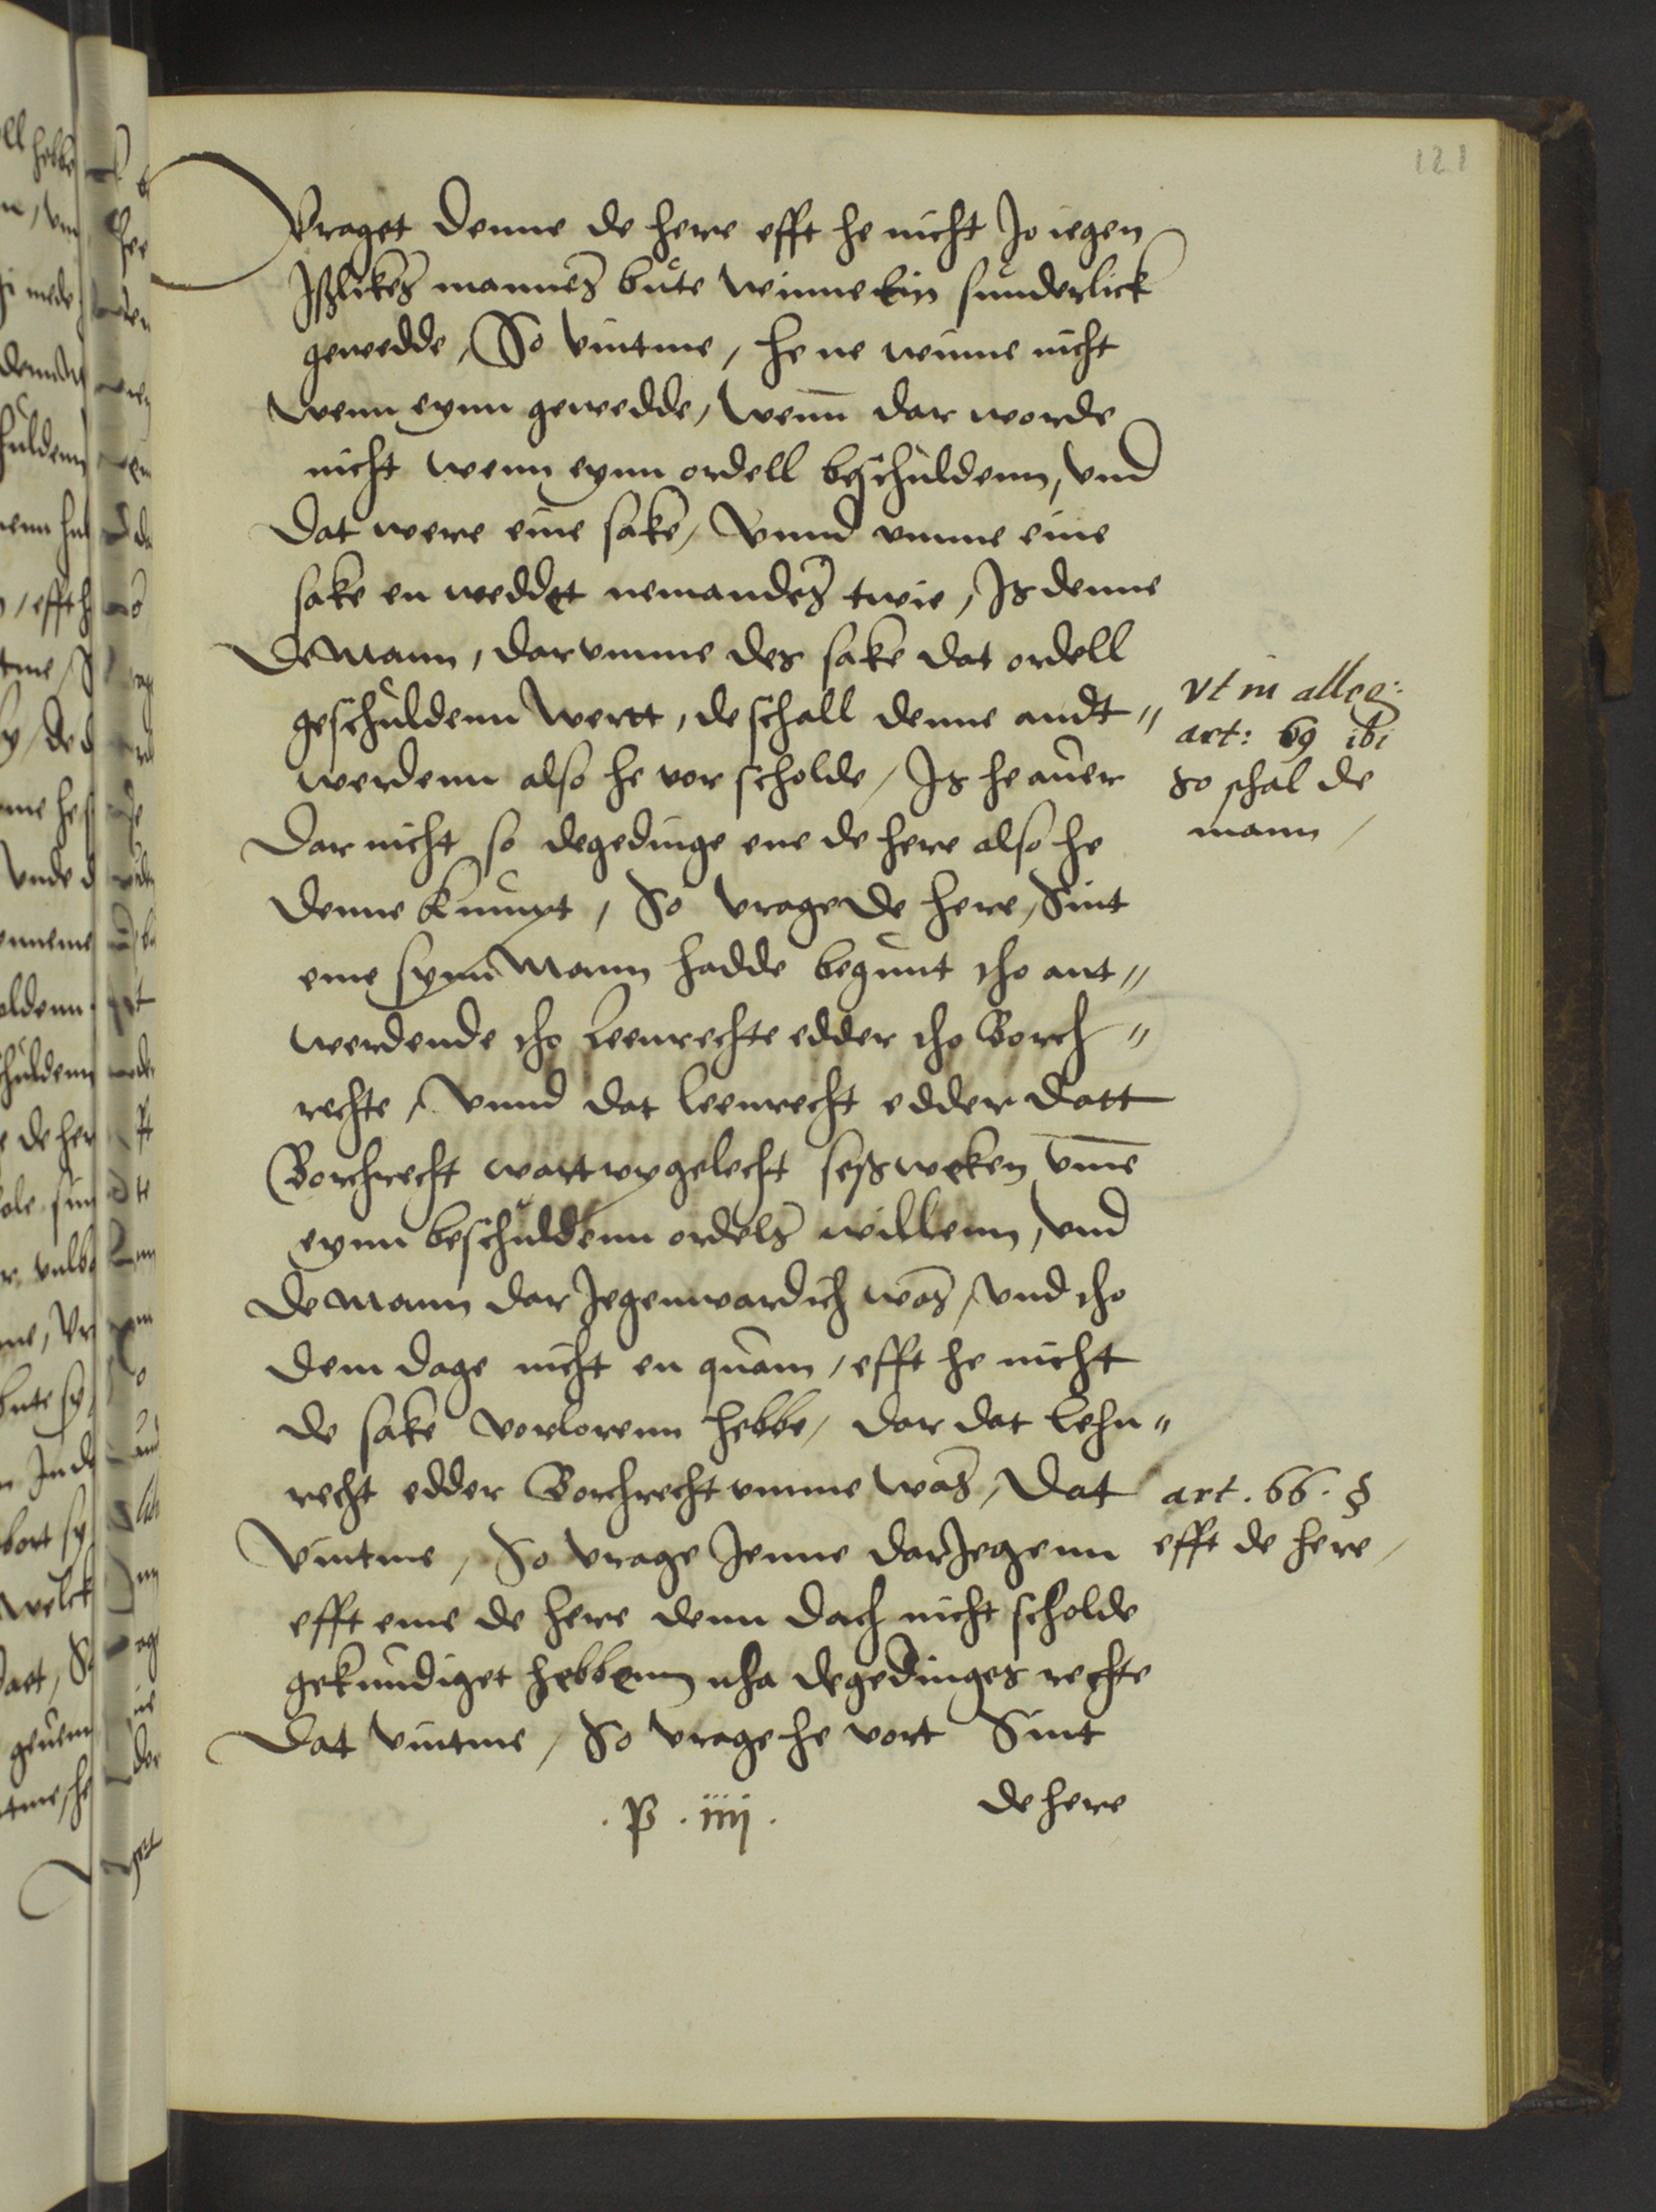 121
Vraget denne de here efft he nicht Jo iegen
Jßlikes mannes bute winne Ein sunderlick
gewedde, So vintme, he ne winne nicht
wenn eynn gewedde, wenn dar worde
nicht wenn eynn ordell beschuldenn, vnd
dat were eine sake, Vnnd vmme eine
sake en weddet nemandes twie, Is denne
de Mann, dar vmme des sake dat ordell
geschuldenn wertt, de schall denne andt〃
werdenn also he vor scholde, Is he auer
dar nicht so degedinge ene de here also he
denne kumpt, So vrage de here, Sint
eme synn Mann hadde begunt tho ant〃
werdende tho leenrechte edder tho Borch〃
rechte, Vnnd dat leenrecht edder datt
Borchrecht wartt vpgelecht seß weken vme
eynn beschuldenn ordels willenn, vnd
de Mann dar Jegenwardich was, vnd tho
dem dage nicht en quam, efft he nicht
de sake vorlorenn hebbe, dar dat Lehn〃
recht edder Borchrecht vmme was, Dat
vintme, So vrage Jenne dar Jegenn
efft eme de here denn dach nicht scholde
gekundiget hebbenn nha degedinges rechte
dat vintme, So vrage he vort Sint
de here
. P . iiij .
vt in alleg:
art: 69 ibi
so schal de
mann,
art. 66. §
efft de here,